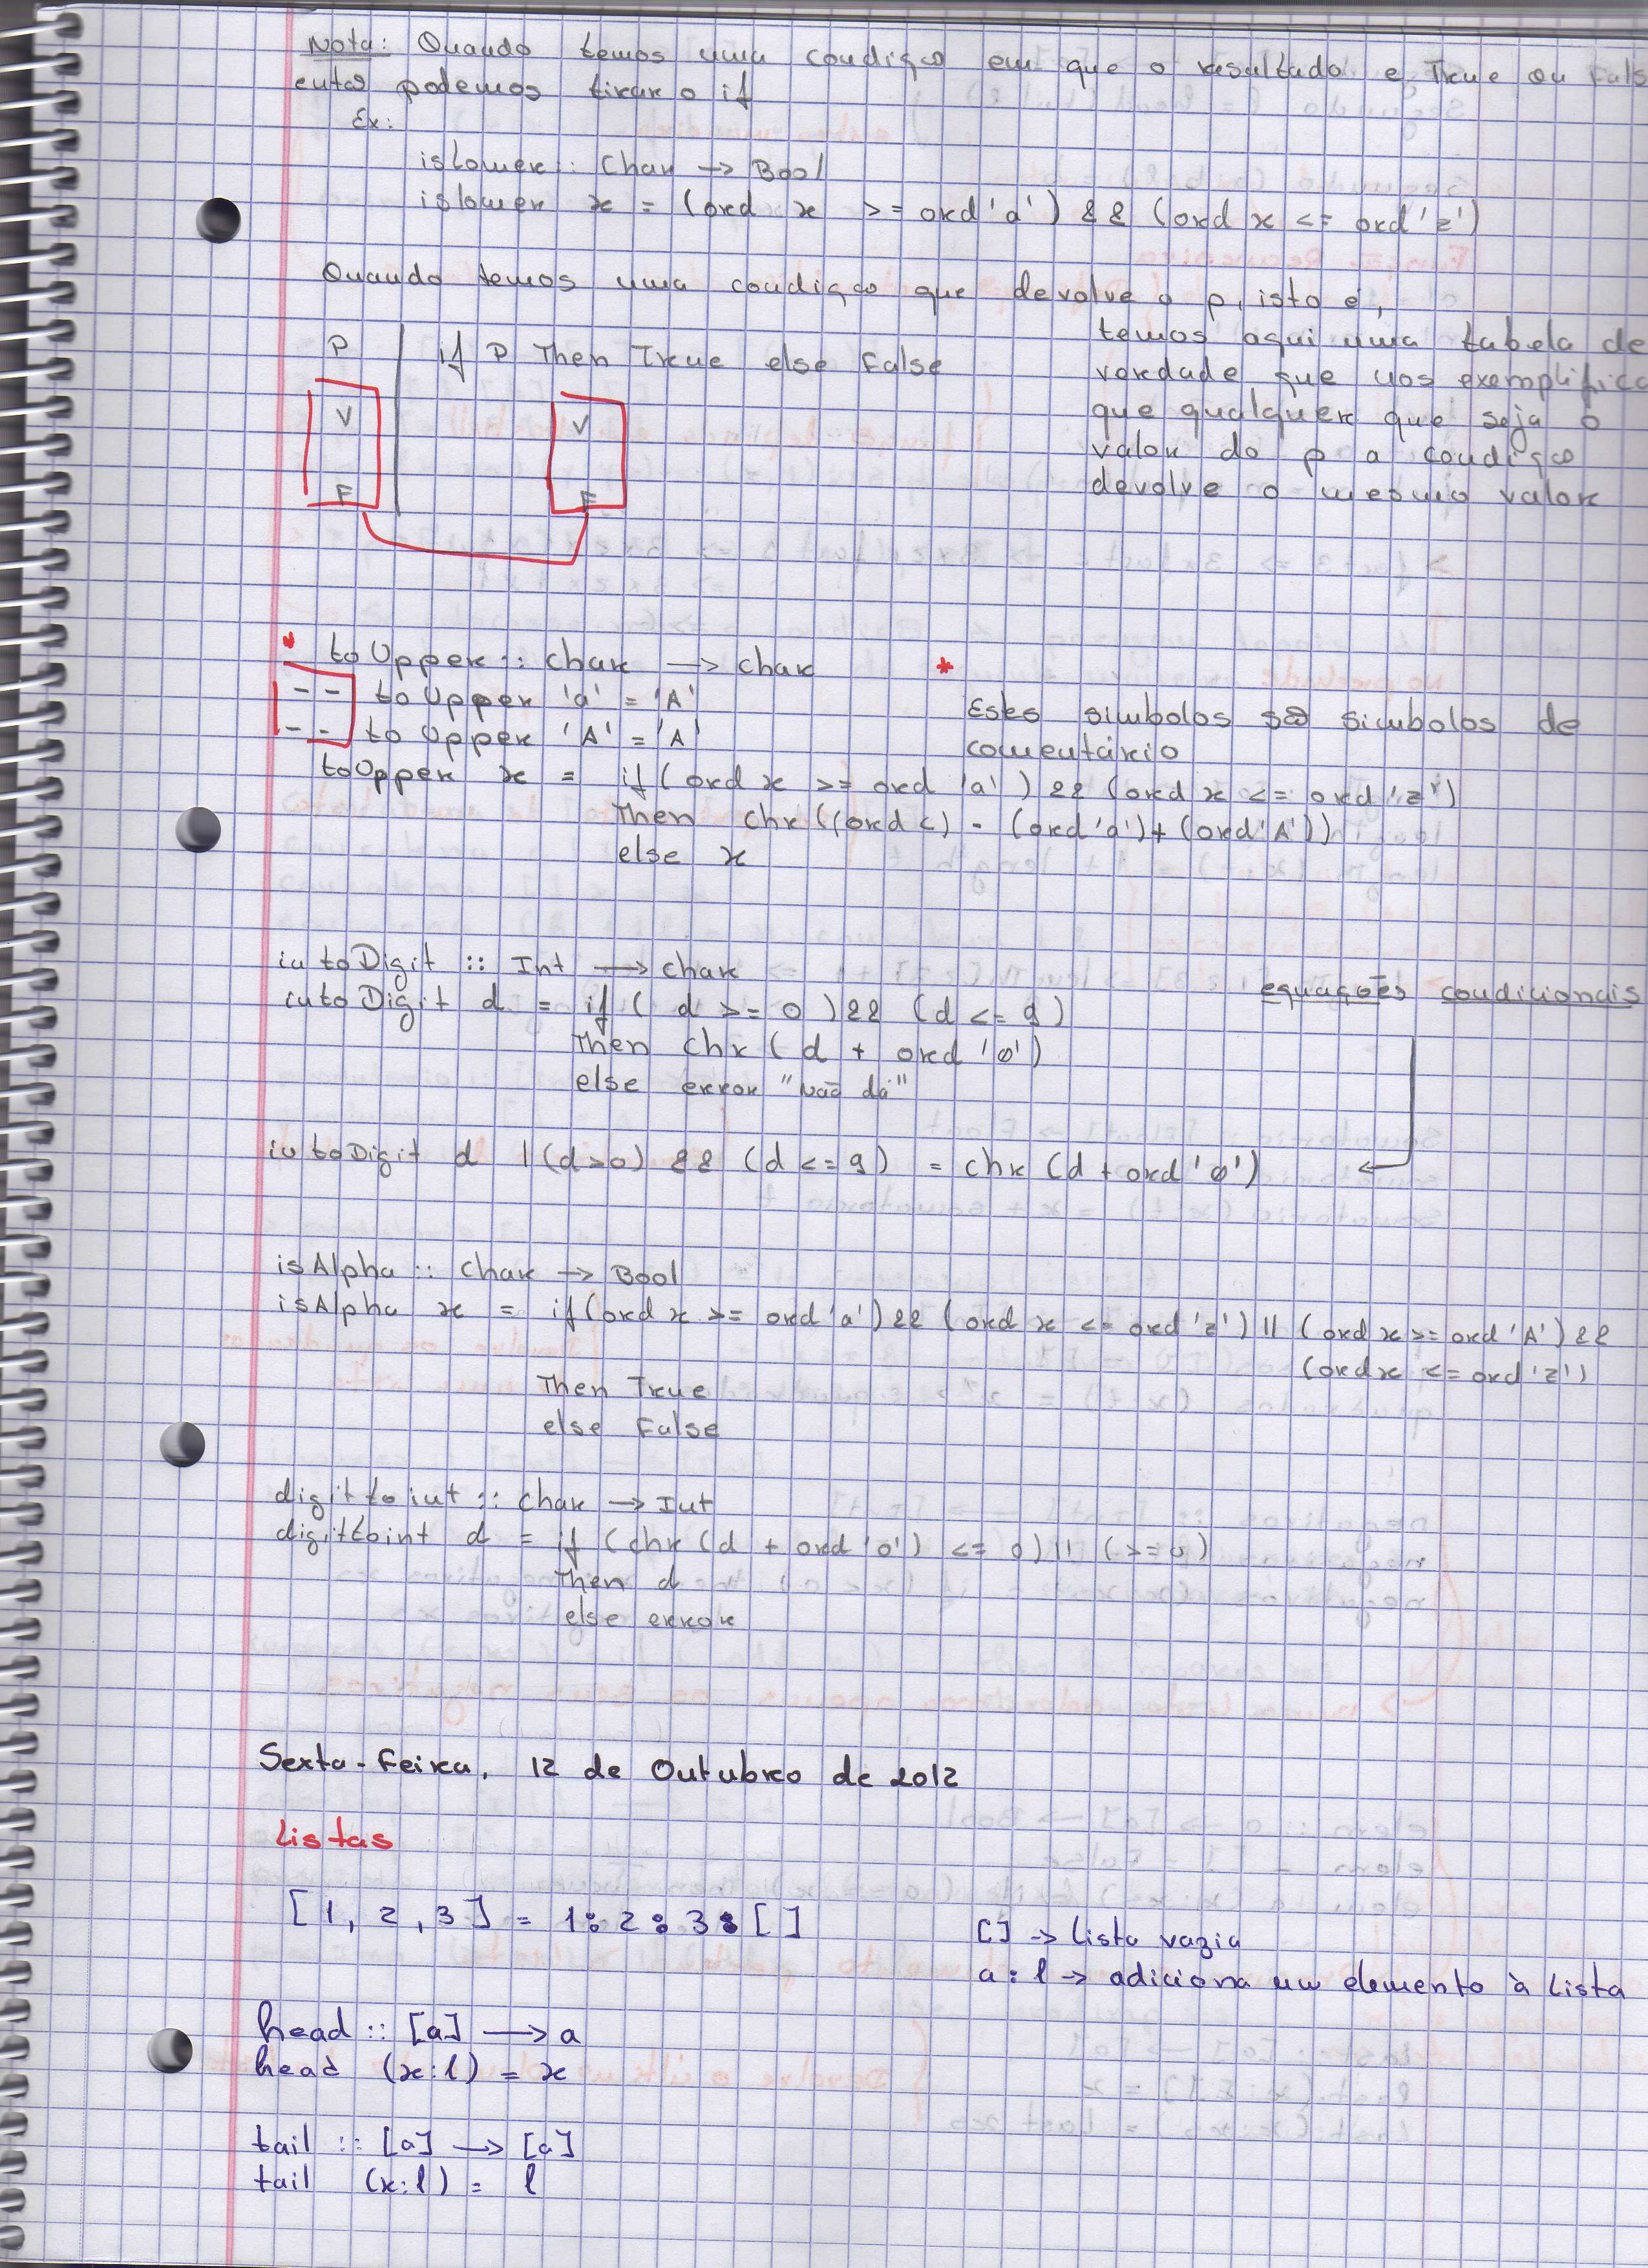 Nota: Quando temos uma condição em que o resultado e True ou Fals
entao podemos tirar o if
Ex:
isLower :: Char -> Bool
islower x = (ord x >= ord 'a') && (ord x <= ord 'z')
Quando temos uma condição que devolve o p, isto é,
temos aqui uma tabela de
verdade que nos exemplifica
que qualquer que seja o
valor do p a condiçao
devolve o mesmo valor
P | if P Then True else False
V V
F F
* toUpper :: char -> char
-- to Upper 'a' = 'A'
-- to Upper 'A' = 'A'
* Estes simbolos são simbolos de
comentário
toUpper x = if (ord x >= ord 'a') && (ord x <= ord 'z')
Then chr((ord c) - (ord 'a') + (ord 'A'))
else x
equações condicionais
intoDigit :: Int -> char
intoDigit d = if ( d >= 0 ) && (d <= 9)
Then chr ( d + ord '0')
else error "não dá"
intoDigit d |(d>0) && (d <= 9) = chr (d + ord '0')
isAlpha :: char -> Bool
isAlpha x = if (ord x >= ord 'a') && (ord x <= ord 'z') || (ord x >= ord 'A') &&
(ord x <= ord 'z')
Then True
else False
digittoint :: char -> Int
digittoint d = if (chr (d + ord '0') <= 0) || (>= 0)
Then d
else error
Sexta-Feira, 12 de Outubro de 2012
Listas
[ 1, 2, 3 ] = 1 : 2 : 3 : [ ]
[ ] -> lista vazia
a : l -> adiciona um elemento à lista
head :: [a] -> a
head (x:l) = x
tail :: [a] -> [a]
tail (x:l) = l